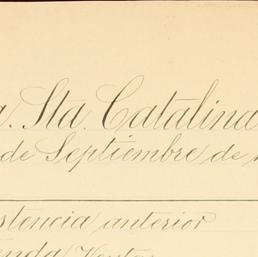 a. Sta. Catalina
de Septiembre de
stencia anterior
enda Ventas